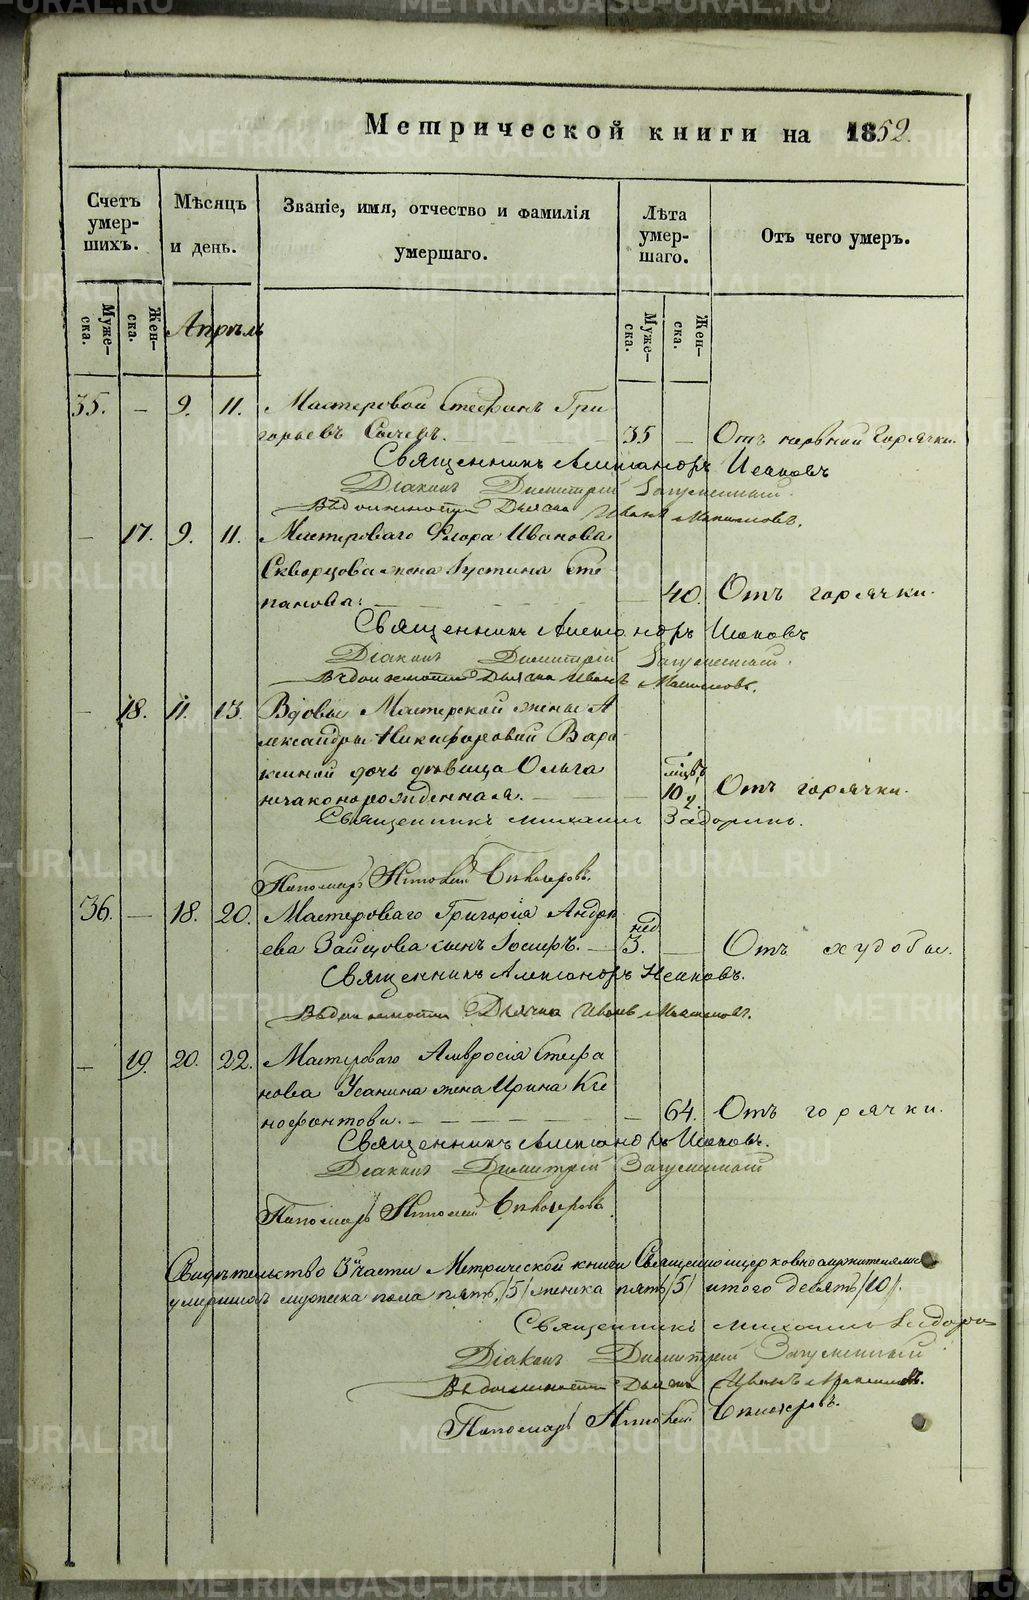 Метрической книги на 1852.
Счетъ умер-шихъ.
Мѣсяцъ и день.
Званіе, имя, отчество и фамилія умершаго.
Лѣта умер-шаго.
Отъ чего умеръ.
Муже-ска.
Жен-ска.
Апрѣль
Муже-ска.
Жен-ска.
35. — 9. 11. Мастеровой Стефанъ Гри
горьевъ Сычевъ. 35 — Отъ нервной горячки.
Священникъ Александръ Исаковъ
Діаконъ Димитрій
Въ должности Дьячка Иванъ Максимовъ.
— 17. 9. 11. Мастероваго Флора Иванова
Скворцова жена Іустина Сте
панова. — 40. Отъ горячки.
Священникъ Александръ Исаковъ
Діаконъ Димитрій
Въ должности Дьячка Иванъ Максимовъ.
— 18. 11. 13. Вдовы Мастерской жены А
лександры Никифоровой Вара
киной дочь дѣвица Ольга
незаконорожденная. — 10 Отъ горячки.
Священникъ Михаилъ
Пономарь
36. — 18. 20. Мастероваго Григорія Андре
ева Зайцова сынъ Іосифъ. — нед. 3. — Отъ худобы.
Священникъ Александръ Исаковъ.
Въ должности Дьячка Иванъ Максимовъ.
— 19. 20. 22. Мастероваго Амвросія Стефа
нова Усанина жена Ирина Ксе
нофонтова. — 64. Отъ горячки.
Священникъ Александръ Исаковъ.
Діаконъ Димитрій
Пономарь
Свидѣтельство 3й части Метрической книги Священноцерковнослужителями
умершихъ мужеска пола пять /5/ женска пять /5/ итого десять /10/.
Священникъ Михаилъ
Діаконъ Димитрій
Въ должности Дьячка Иванъ Максимовъ.
Пономарь
METRIKI.GASO-URAL.RU